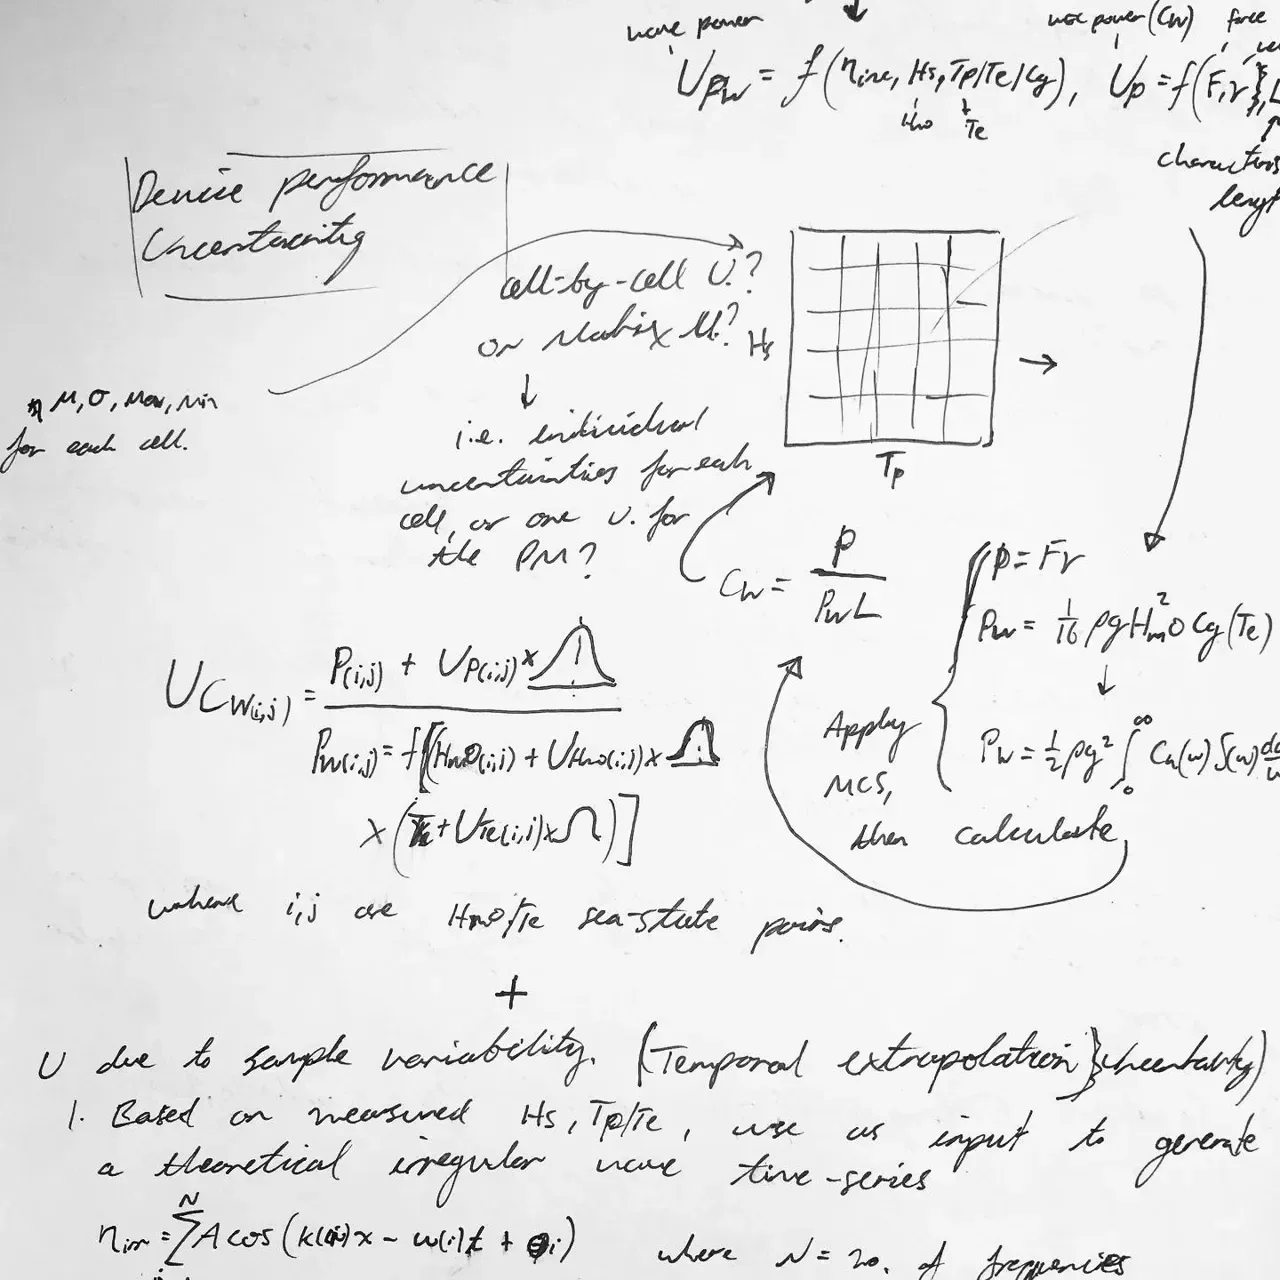 wave power
wec power (CW) force
U_Pw = f(ηirr, Hs, Tp/Te/Cg), Up = f(F, v
Hm0 Te
length
Device performance
Uncertainty
cell-by-cell U.?
or Matrix U.?
Hs
Tp
μ, σ, Max, Min
for each cell.
↓
i.e. individual
uncertainties for each
cell, or one U. for
the PM?
CW = P / PwL
P = Fv
Pw = 1/16 ρg H²m0 Cg(Te)
↓
Pw = ½ρg² ∫₀^∞ Cg(ω) S(ω)
Apply
MCS,
then calculate
UCW(i,j) = P(i,j) + UP(i,j) ×
Pw(i,j) = f[(Hm0(i,j) + UHm0(i,j) ×
× (Te + UTe(i,j) × )]
where i,j are Hm0/Te sea-state pairs.
+
U due to sample variability. (Temporal extrapolation} Uncertainty)
1. Based on measured Hs, Tp/Te, use as input to generate
a theoretical irregular wave time-series
ηirr = Σ^N A cos (k(i)x - ω(i)t + θi) where N = no. of frequencies